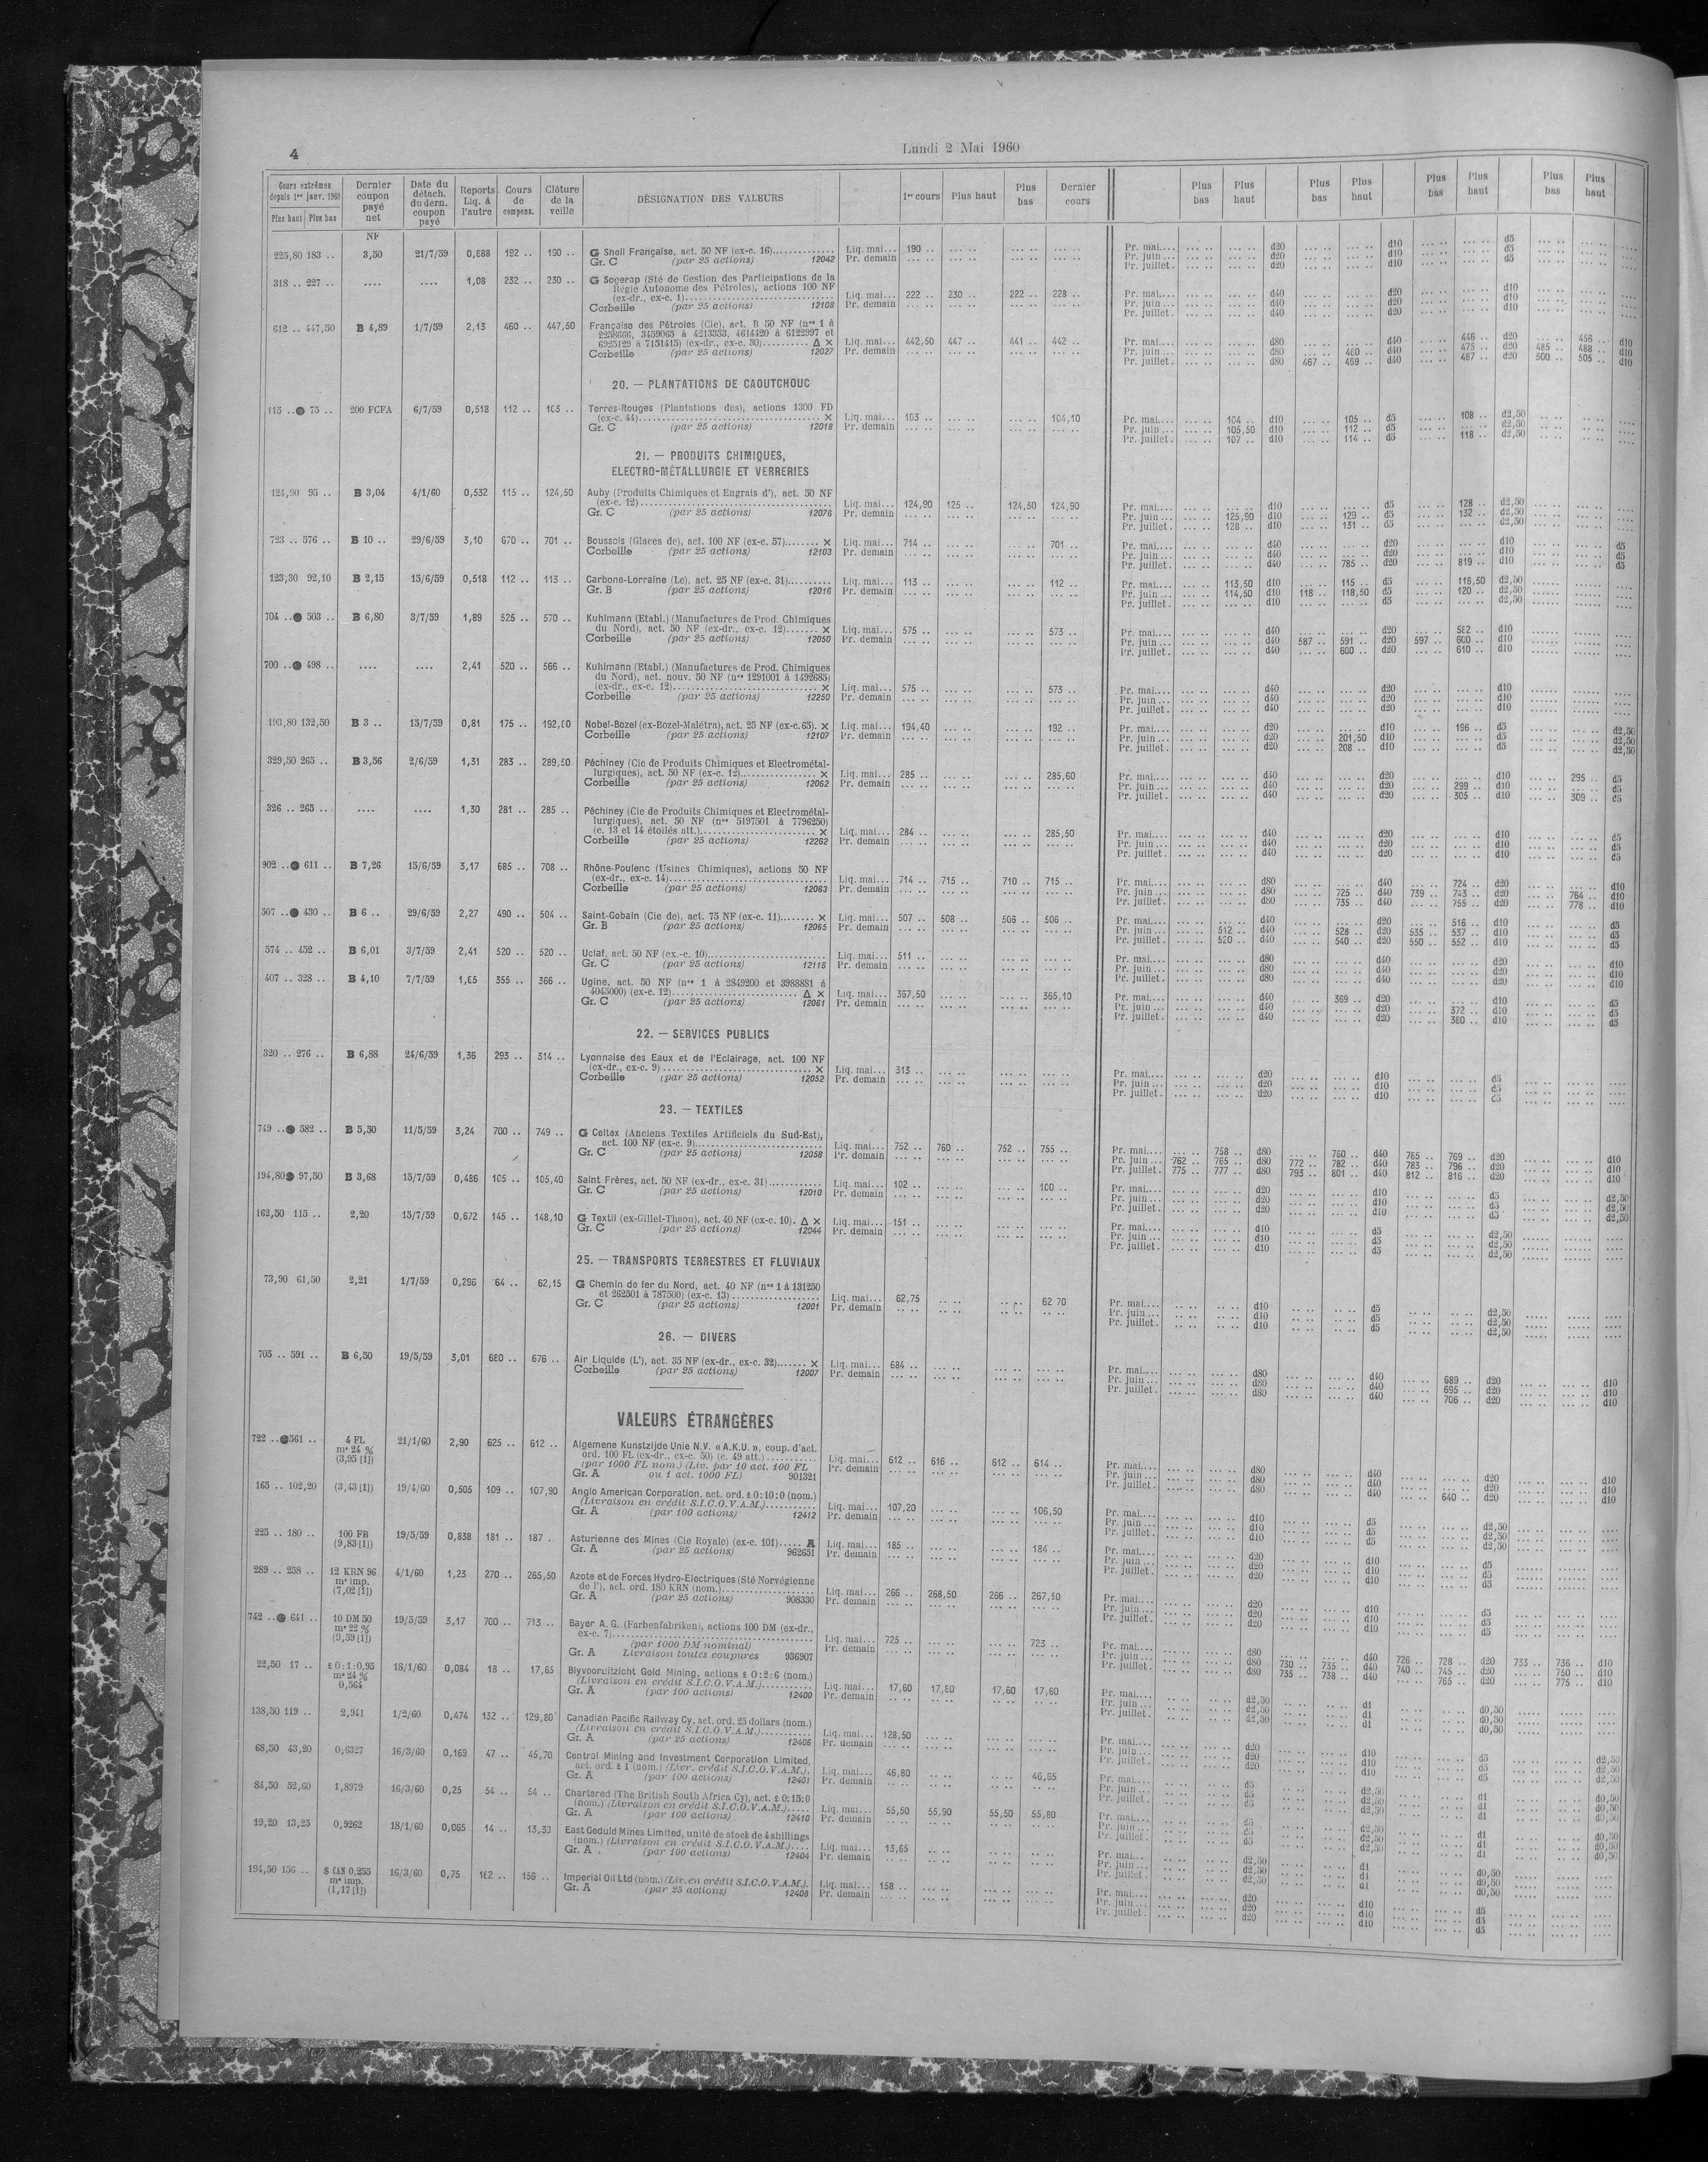 4
Lundi 2 Mai 1960
Cours extrêmes depuis 1er janv. 1960 Plus haut Plus bas | Dernier coupon payé net | Date du détach. du dern. coupon payé | Reports Liq. à l'autre | Cours de compens. | Clôture de la veille | DÉSIGNATION DES VALEURS | 1er cours | Plus haut | Plus bas | Dernier cours | Plus bas | Plus haut | Plus bas | Plus haut | Plus bas | Plus haut | Plus bas | Plus haut
NF
225,80 183 .. 3,50 21/7/59 0,888 192 .. 190 .. G Shell Française, act. 50 NF (ex-c. 16) Liq. mai... 190 .. Pr. mai.... d20 d10 d5
Gr. C (par 25 actions) 12042 Pr. demain Pr. juin... d20 d10 d5
Pr. juillet. d20 d10 d5
318 .. 227 .. .... .... 1,08 232 .. 230 .. G Sogerap (Sté de Gestion des Participations de la
Régie Autonome des Pétroles), actions 100 NF
(ex-dr., ex-c. 1) Liq. mai... 222 .. 230 .. 222 .. 228 .. Pr. mai.... d40 d20 d10
Corbeille (par 25 actions) 12108 Pr. demain Pr. juin... d40 d20 d10
Pr. juillet. d40 d20 d10
612 .. 447,50 B 4,89 1/7/59 2,13 460 .. 447,50 Française des Pétroles (Cie), act. B 50 NF (nos 1 à
2258666, 3459065 à 4213353, 4614420 à 6122997 et
6925129 à 7151415) (ex-dr., ex-c. 30) Δ × Liq. mai... 442,50 447 .. 441 .. 442 .. Pr. mai.... d80 d40 446 .. d20 456 .. d10
Corbeille (par 25 actions) 12027 Pr. demain Pr. juin... d80 460 .. d40 475 .. d20 485 .. 488 .. d10
Pr. juillet. d80 467 .. 469 .. d40 487 .. d20 500 .. 505 .. d10
20. — PLANTATIONS DE CAOUTCHOUC
115 .. ● 75 .. 200 FCFA 6/7/59 0,518 112 .. 103 .. Terres-Rouges (Plantations des), actions 1300 FD
(ex-c. 44) × Liq. mai... 103 .. 104,10 Pr. mai.... 104 .. d10 105 .. d5 108 .. d2,50
Gr. C (par 25 actions) 12018 Pr. demain Pr. juin... 105,50 d10 112 .. d5 d2,50
Pr. juillet. 107 .. d10 114 .. d5 118 .. d2,50
21. — PRODUITS CHIMIQUES,
ELECTRO-MÉTALLURGIE ET VERRERIES
124,90 95 .. B 3,04 4/1/60 0,532 115 .. 124,50 Auby (Produits Chimiques et Engrais d'), act. 50 NF
(ex-c. 12) Liq. mai... 124,90 125 .. 124,50 124,90 Pr. mai.... d10 d5 128 .. d2,50
Gr. C (par 25 actions) 12076 Pr. demain Pr. juin... 125,90 d10 129 .. d5 132 .. d2,50
Pr. juillet. 128 .. d10 131 .. d5 d2,50
723 .. 576 .. B 10 .. 29/6/59 3,10 670 .. 701 .. Boussois (Glaces de), act. 100 NF (ex-c. 57) × Liq. mai... 714 .. 701 .. Pr. mai.... d40 d20 d10
Corbeille (par 25 actions) 12103 Pr. demain Pr. juin... d40 d20 d10 d5
Pr. juillet. d40 785 .. d20 819 .. d5
123,30 92,10 B 2,15 15/6/59 0,518 112 .. 113 .. Carbone-Lorraine (Le), act. 25 NF (ex-c. 31) Liq. mai... 113 .. 112 .. Pr. mai.... 113,50 d10 115 .. d5 116,50 d2,50
Gr. B (par 25 actions) 12016 Pr. demain Pr. juin... 114,50 d10 118 .. 118,50 d5 120 .. d2,50
Pr. juillet. d10 d5 d2,50
704 .. ● 503 .. B 6,80 3/7/59 1,89 525 .. 570 .. Kuhlmann (Etabl.) (Manufactures de Prod. Chimiques
du Nord), act. 50 NF (ex-dr., ex-c. 12) × Liq. mai... 575 .. 573 .. Pr. mai.... d40 d20 582 .. d10
Corbeille (par 25 actions) 12050 Pr. demain Pr. juin... d40 587 .. 591 .. d20 597 .. 600 .. d10
Pr. juillet. d40 600 .. d20 610 .. d10
700 .. ● 498 .. .... .... 2,41 520 .. 566 .. Kuhlmann (Etabl.) (Manufactures de Prod. Chimiques
du Nord), act. nouv. 50 NF (nos 1291001 à 1492685)
(ex-dr., ex-c. 12) × Liq. mai... 575 .. 573 .. Pr. mai.... d40 d20 d10
Corbeille (par 25 actions) 12250 Pr. demain Pr. juin... d40 d20 d10
Pr. juillet. d40 d20 d10
193,80 132,50 B 3 .. 15/7/59 0,81 175 .. 192,80 Nobel-Bozel (ex-Bozel-Malétra), act. 25 NF (ex-c. 65). × Liq. mai... 194,40 192 .. Pr. mai.... d20 d10 196 .. d5 d2,50
Corbeille (par 25 actions) 12107 Pr. demain Pr. juin... d20 201,50 d10 d5 d2,50
Pr. juillet. d20 208 .. d10 d5 d2,50
329,50 265 .. B 3,56 2/6/59 1,31 283 .. 289,50 Péchiney (Cie de Produits Chimiques et Electrométal-
lurgiques), act. 50 NF (ex-c. 12) × Liq. mai... 285 .. 285,60 Pr. mai.... d40 d20 d10 295 .. d5
Corbeille (par 25 actions) 12062 Pr. demain Pr. juin... d40 d20 299 .. d10 d5
Pr. juillet. d40 d20 305 .. d10 309 .. d5
326 .. 265 .. .... .... 1,30 281 .. 285 .. Péchiney (Cie de Produits Chimiques et Electrométal-
lurgiques), act. 50 NF (nos 5197501 à 7796250)
(c. 13 et 14 étoilés att.) × Liq. mai... 284 .. 285,50 Pr. mai.... d40 d20 d10 d5
Corbeille (par 25 actions) 12262 Pr. demain Pr. juin... d40 d20 d10 d5
Pr. juillet. d40 d20 d10 d5
902 .. ● 611 .. B 7,26 15/6/59 3,17 685 .. 708 .. Rhône-Poulenc (Usines Chimiques), actions 50 NF
(ex-dr., ex-c. 14) Liq. mai... 714 .. 715 .. 710 .. 715 .. Pr. mai.... d80 d40 724 .. d20 d10
Corbeille (par 25 actions) 12063 Pr. demain Pr. juin... d80 725 .. d40 739 .. 743 .. d20 764 .. d10
Pr. juillet. d80 735 .. d40 755 .. d20 778 .. d10
507 .. ● 430 .. B 6 .. 29/6/59 2,27 490 .. 504 .. Saint-Gobain (Cie de), act. 75 NF (ex-c. 11) × Liq. mai... 507 .. 508 .. 506 .. 506 .. Pr. mai.... d40 d20 516 .. d10 d5
Gr. B (par 25 actions) 12065 Pr. demain Pr. juin... 512 .. d40 528 .. d20 535 .. 537 .. d10 d5
Pr. juillet. 520 .. d40 540 .. d20 550 .. 552 .. d10 d5
574 .. 452 .. B 6,01 3/7/59 2,41 520 .. 520 .. Uclaf, act. 50 NF (ex.-c. 10) Liq. mai... 511 .. Pr. mai.... d80 d40 d20 d10
Gr. C (par 25 actions) 12116 Pr. demain Pr. juin... d80 d40 d20 d10
Pr. juillet. d80 d40 d20 d10
407 .. 328 .. B 4,10 7/7/59 1,65 355 .. 366 .. Ugine, act. 50 NF (nos 1 à 2849200 et 3988881 à
4045000) (ex-c. 12) Δ × Liq. mai... 367,50 365,10 Pr. mai.... d40 369 .. d20 d10 d5
Gr. C (par 25 actions) 12061 Pr. demain Pr. juin... d40 d20 372 .. d10 d5
Pr. juillet. d40 d20 380 .. d10 d5
22. — SERVICES PUBLICS
320 .. 276 .. B 6,88 24/6/59 1,36 293 .. 314 .. Lyonnaise des Eaux et de l'Eclairage, act. 100 NF
(ex-dr., ex-c. 9) × Liq. mai... 313 .. Pr. mai.... d20 d10 d5
Corbeille (par 25 actions) 12052 Pr. demain Pr. juin... d20 d10 d5
Pr. juillet. d20 d10 d5
23. — TEXTILES
749 .. ● 582 .. B 5,50 11/5/59 3,24 700 .. 749 .. G Celtex (Anciens Textiles Artificiels du Sud-Est),
act. 100 NF (ex-c. 9) Liq. mai... 752 .. 760 .. 752 .. 755 .. Pr. mai.... 758 .. d80 760 .. d40 765 .. 769 .. d20 d10
Gr. C (par 25 actions) 12058 Pr. demain Pr. juin... 762 .. 765 .. d80 772 .. 782 .. d40 783 .. 796 .. d20 d10
Pr. juillet. 775 .. 777 .. d80 793 .. 801 .. d40 812 .. 816 .. d20 d10
194,80 ● 97,50 B 3,68 15/7/59 0,486 105 .. 105,40 Saint Frères, act. 50 NF (ex-dr., ex-c. 31) Liq. mai... 102 .. 100 .. Pr. mai.... d20 d10 d5 d2,50
Gr. C (par 25 actions) 12010 Pr. demain Pr. juin... d20 d10 d5 d2,50
Pr. juillet. d20 d10 d5 d2,50
162,50 115 .. 2,20 15/7/59 0,672 145 .. 148,10 G Textil (ex-Gillet-Thaon), act. 40 NF (ex-c. 10). Δ × Liq. mai... 151 .. Pr. mai.... d10 d5 d2,50
Gr. C (par 25 actions) 12044 Pr. demain Pr. juin... d10 d5 d2,50
Pr. juillet. d10 d5 d2,50
25. — TRANSPORTS TERRESTRES ET FLUVIAUX
73,90 61,50 2,21 1/7/59 0,296 64 .. 62,15 G Chemin de fer du Nord, act. 40 NF (nos 1 à 131250
et 262501 à 787500) (ex-c. 13) Liq. mai... 62,75 62 70 Pr. mai.... d10 d5 d2,50
Gr. C (par 25 actions) 12001 Pr. demain Pr. juin... d10 d5 d2,50
Pr. juillet. d10 d5 d2,50
26. — DIVERS
705 .. 591 .. B 6,50 19/5/59 3,01 680 .. 676 .. Air Liquide (L'), act. 35 NF (ex-dr., ex-c. 32) × Liq. mai... 684 .. Pr. mai.... d80 d40 689 .. d20 d10
Corbeille (par 25 actions) 12007 Pr. demain Pr. juin... d80 d40 695 .. d20 d10
Pr. juillet. d80 d40 706 .. d20 d10
VALEURS ÉTRANGÈRES
722 .. ● 561 .. 4 FL 21/1/60 2,90 625 .. 612 .. Algemene Kunstzijde Unie N.V. « A.K.U. », coup. d'act.
ms 24 % ord. 100 FL (ex-dr., ex-c. 50) (c. 49 att.)
(3,95 [1]) (par 1000 FL nom.) (Liv. par 10 act. 100 FL Liq. mai... 612 .. 616 .. 612 .. 614 .. Pr. mai.... d80 d40 d20 d10
Gr. A ou 1 act. 1000 FL) 901321 Pr. demain Pr. juin... d80 d40 d20 d10
Pr. juillet. d80 d40 640 .. d20 d10
165 .. 102,20 (3,43 [1]) 19/4/60 0,505 109 .. 107,90 Anglo American Corporation, act. ord. £ 0:10:0 (nom.)
(Livraison en crédit S.I.C.O.V.A.M.) Liq. mai... 107,20 106,50 Pr. mai.... d10 d5 d2,50
Gr. A (par 100 actions) 12412 Pr. demain Pr. juin... d10 d5 d2,50
Pr. juillet. d10 d5 d2,50
225 .. 180 .. 100 FB 19/5/59 0,838 181 .. 187 .. Asturienne des Mines (Cie Royale) (ex-c. 101) A Liq. mai... 185 .. 184 .. Pr. mai.... d20 d10 d5
(9,83 [1]) Gr. A (par 25 actions) 962651 Pr. demain Pr. juin... d20 d10 d5
Pr. juillet. d20 d10 d5
289 .. 258 .. 12 KRN 96 4/1/60 1,23 270 .. 265,50 Azote et de Forces Hydro-Electriques (Sté Norvégienne
ms imp. de l'), act. ord. 180 KRN (nom.) Liq. mai... 266 .. 268,50 266 .. 267,50 Pr. mai.... d20 d10 d5
(7,02 [1]) Gr. A (par 25 actions) 908330 Pr. demain Pr. juin... d20 d10 d5
Pr. juillet. d20 d10 d5
742 .. ● 641 .. 10 DM 50 19/5/59 3,17 700 .. 713 .. Bayer A.G. (Farbenfabriken), actions 100 DM (ex-dr.,
ms 22 % ex-c. 7)
(9,59 [1]) (par 1000 DM nominal) Liq. mai... 725 .. 723 .. Pr. mai.... d80 d40 726 .. 728 .. d20 733 .. 736 .. d10
Gr. A Livraison toutes coupures 936907 Pr. demain Pr. juin... d80 730 .. 735 .. d40 740 .. 745 .. d20 750 .. d10
Pr. juillet. d80 735 .. 738 .. d40 765 .. d20 775 .. d10
22,50 17 .. £ 0:1:0,95 18/1/60 0,084 18 .. 17,65 Blyvooruitzicht Gold Mining, actions £ 0:2:6 (nom.)
ms 24 % (Livraison en crédit S.I.C.O.V.A.M.) Liq. mai... 17,60 17,80 17,60 17,60 Pr. mai.... d2,50 d1 d0,50
0,564 Gr. A (par 100 actions) 12400 Pr. demain Pr. juin... d2,50 d1 d0,50
Pr. juillet. d2,50 d1 d0,50
138,50 119 .. 2,941 1/2/60 0,474 132 .. 129,80 Canadian Pacific Railway Cy, act. ord. 25 dollars (nom.)
(Livraison en crédit S.I.C.O.V.A.M.) Liq. mai... 128,50 Pr. mai.... d20 d10 d5 d2,50
Gr. A (par 25 actions) 12406 Pr. demain Pr. juin... d20 d10 d5 d2,50
Pr. juillet. d20 d10 d5 d2,50
68,50 43,20 0,6327 16/3/60 0,169 47 .. 45,70 Central Mining and Investment Corporation Limited,
act. ord. £ 1 (nom.) (Livr. crédit S.I.C.O.V.A.M.). Liq. mai... 46,80 46,65 Pr. mai.... d5 d2,50 d1 d0,50
Gr. A (par 100 actions) 12401 Pr. demain Pr. juin... d5 d2,50 d1 d0,50
Pr. juillet. d5 d2,50 d1 d0,50
84,50 52,60 1,8979 16/3/60 0,25 54 .. 54 .. Chartered (The British South Africa Cy), act. £ 0:15:0
(nom.) (Livraison en crédit S.I.C.O.V.A.M.) Liq. mai... 55,50 55,90 55,50 55,80 Pr. mai.... d5 d2,50 d1 d0,50
Gr. A (par 100 actions) 12410 Pr. demain Pr. juin... d5 d2,50 d1 d0,50
Pr. juillet. d5 d2,50 d1 d0,50
19,20 13,25 0,9262 18/1/60 0,065 14 .. 13,30 East Geduld Mines Limited, unité de stock de 4 shillings
(nom.) (Livraison en crédit S.I.C.O.V.A.M.) Liq. mai... 13,65 Pr. mai.... d2,50 d1 d0,50
Gr. A (par 100 actions) 12404 Pr. demain Pr. juin... d2,50 d1 d0,50
Pr. juillet. d2,50 d1 d0,50
194,50 156 .. $ CAN 0,255 16/3/60 0,75 162 .. 156 .. Imperial Oil Ltd (nom.) (Liv. en crédit S.I.C.O.V.A.M.). Liq. mai... 158 .. Pr. mai.... d20 d10 d5
ms imp. Gr. A (par 25 actions) 12408 Pr. demain Pr. juin... d20 d10 d5
(1,17 [1]) Pr. juillet. d20 d10 d5